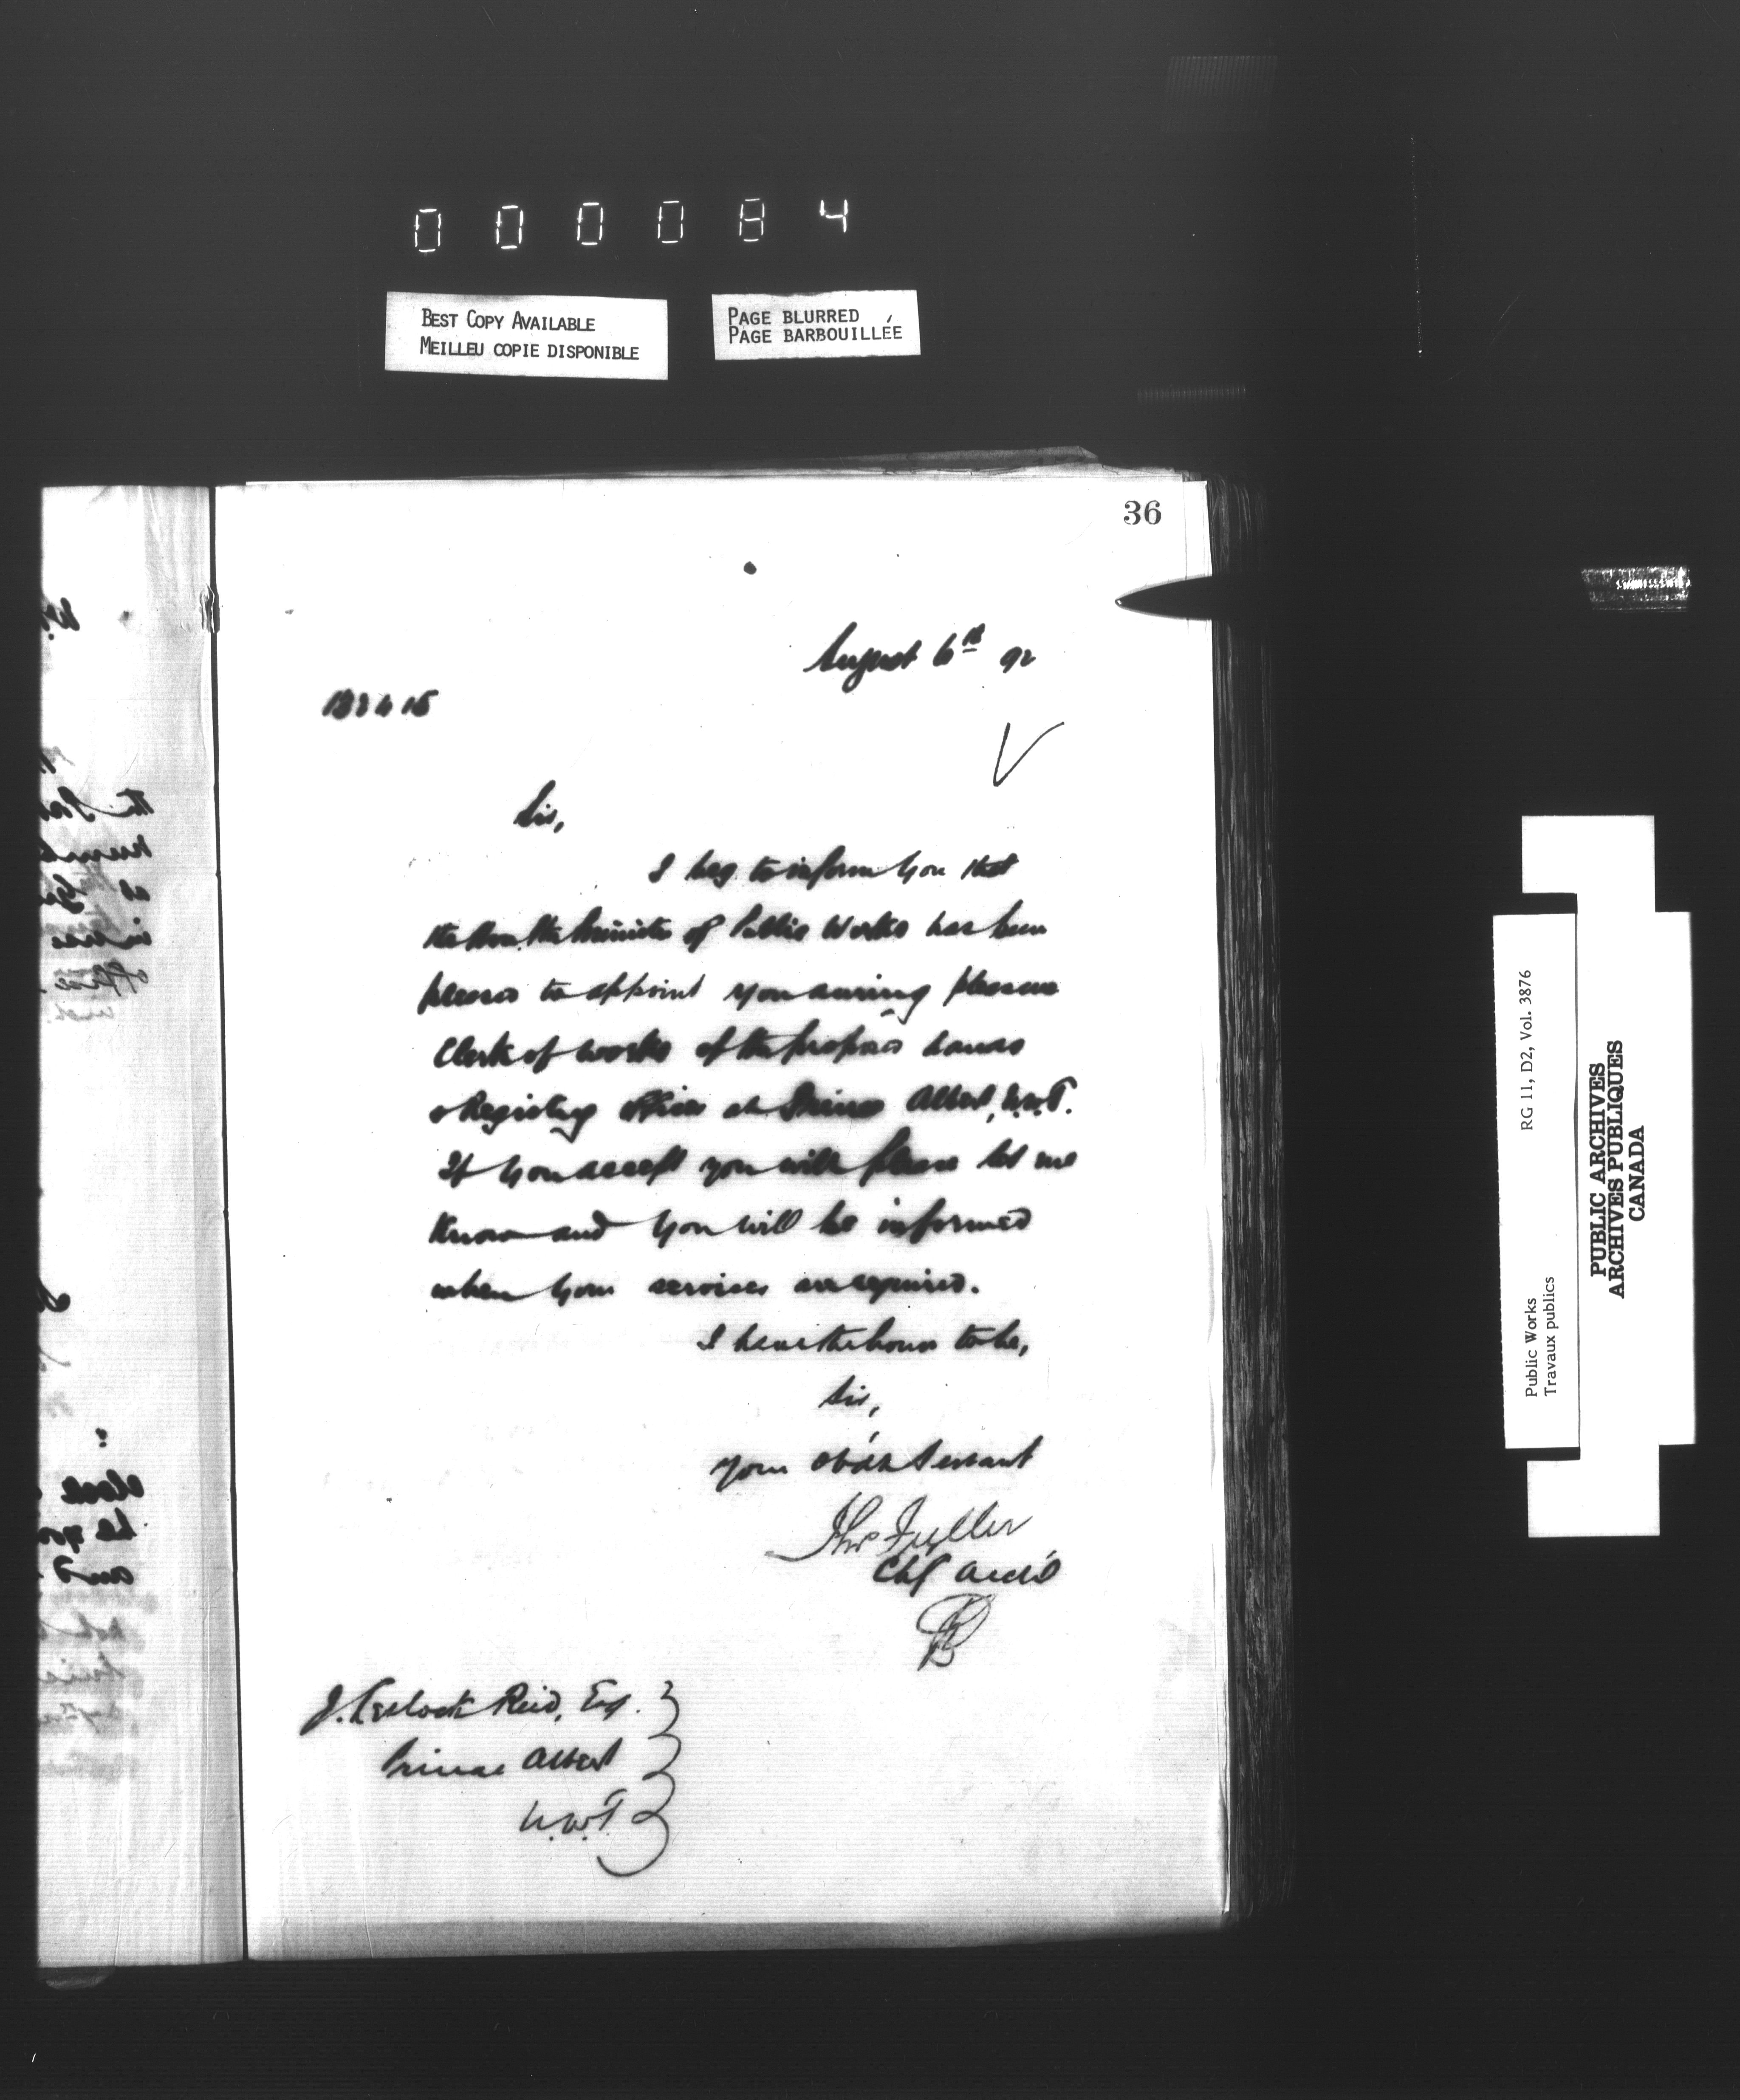 000084
BEST COPY AVAILABLE
MEILLEU COPIE DISPONIBLE
PAGE BLURRED
PAGE BARBOUILLÉE
36
August 6th 92
Sir,
I beg to inform you that
the Hon. the Minister of Public Works has been
pleased to appoint you during pleasure
Clerk of works of the proposed Lands
& Registry Offices at Prince Albert, N.W.T.
If you accept you will please let me
know and you will be informed
when your services are required.
I have the honor to be,
Sir,
Your Obdt Servant
Thos Fuller
Chf Archt
J. Lestock Reid, Esq.
Prince Albert
N.W.T.
Public Works
Travaux publics
RG 11, D2, Vol. 3876
PUBLIC ARCHIVES
ARCHIVES PUBLIQUES
CANADA